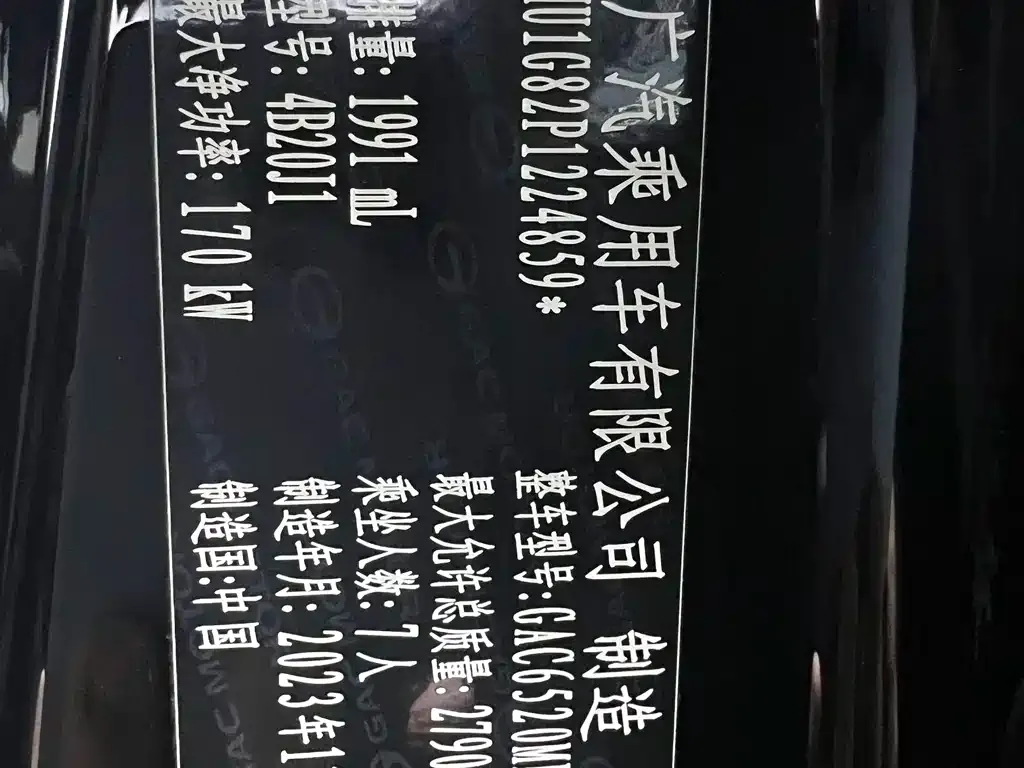 广汽乘用车有限公司 制造
U1G82P1224859*
整车型号:GAC6520M
最大允许总质量:2790
排量:1991 mL
乘坐人数:7人
型号:4B20J1
制造年月:2023年1
最大净功率:170 kW
制造国:中国